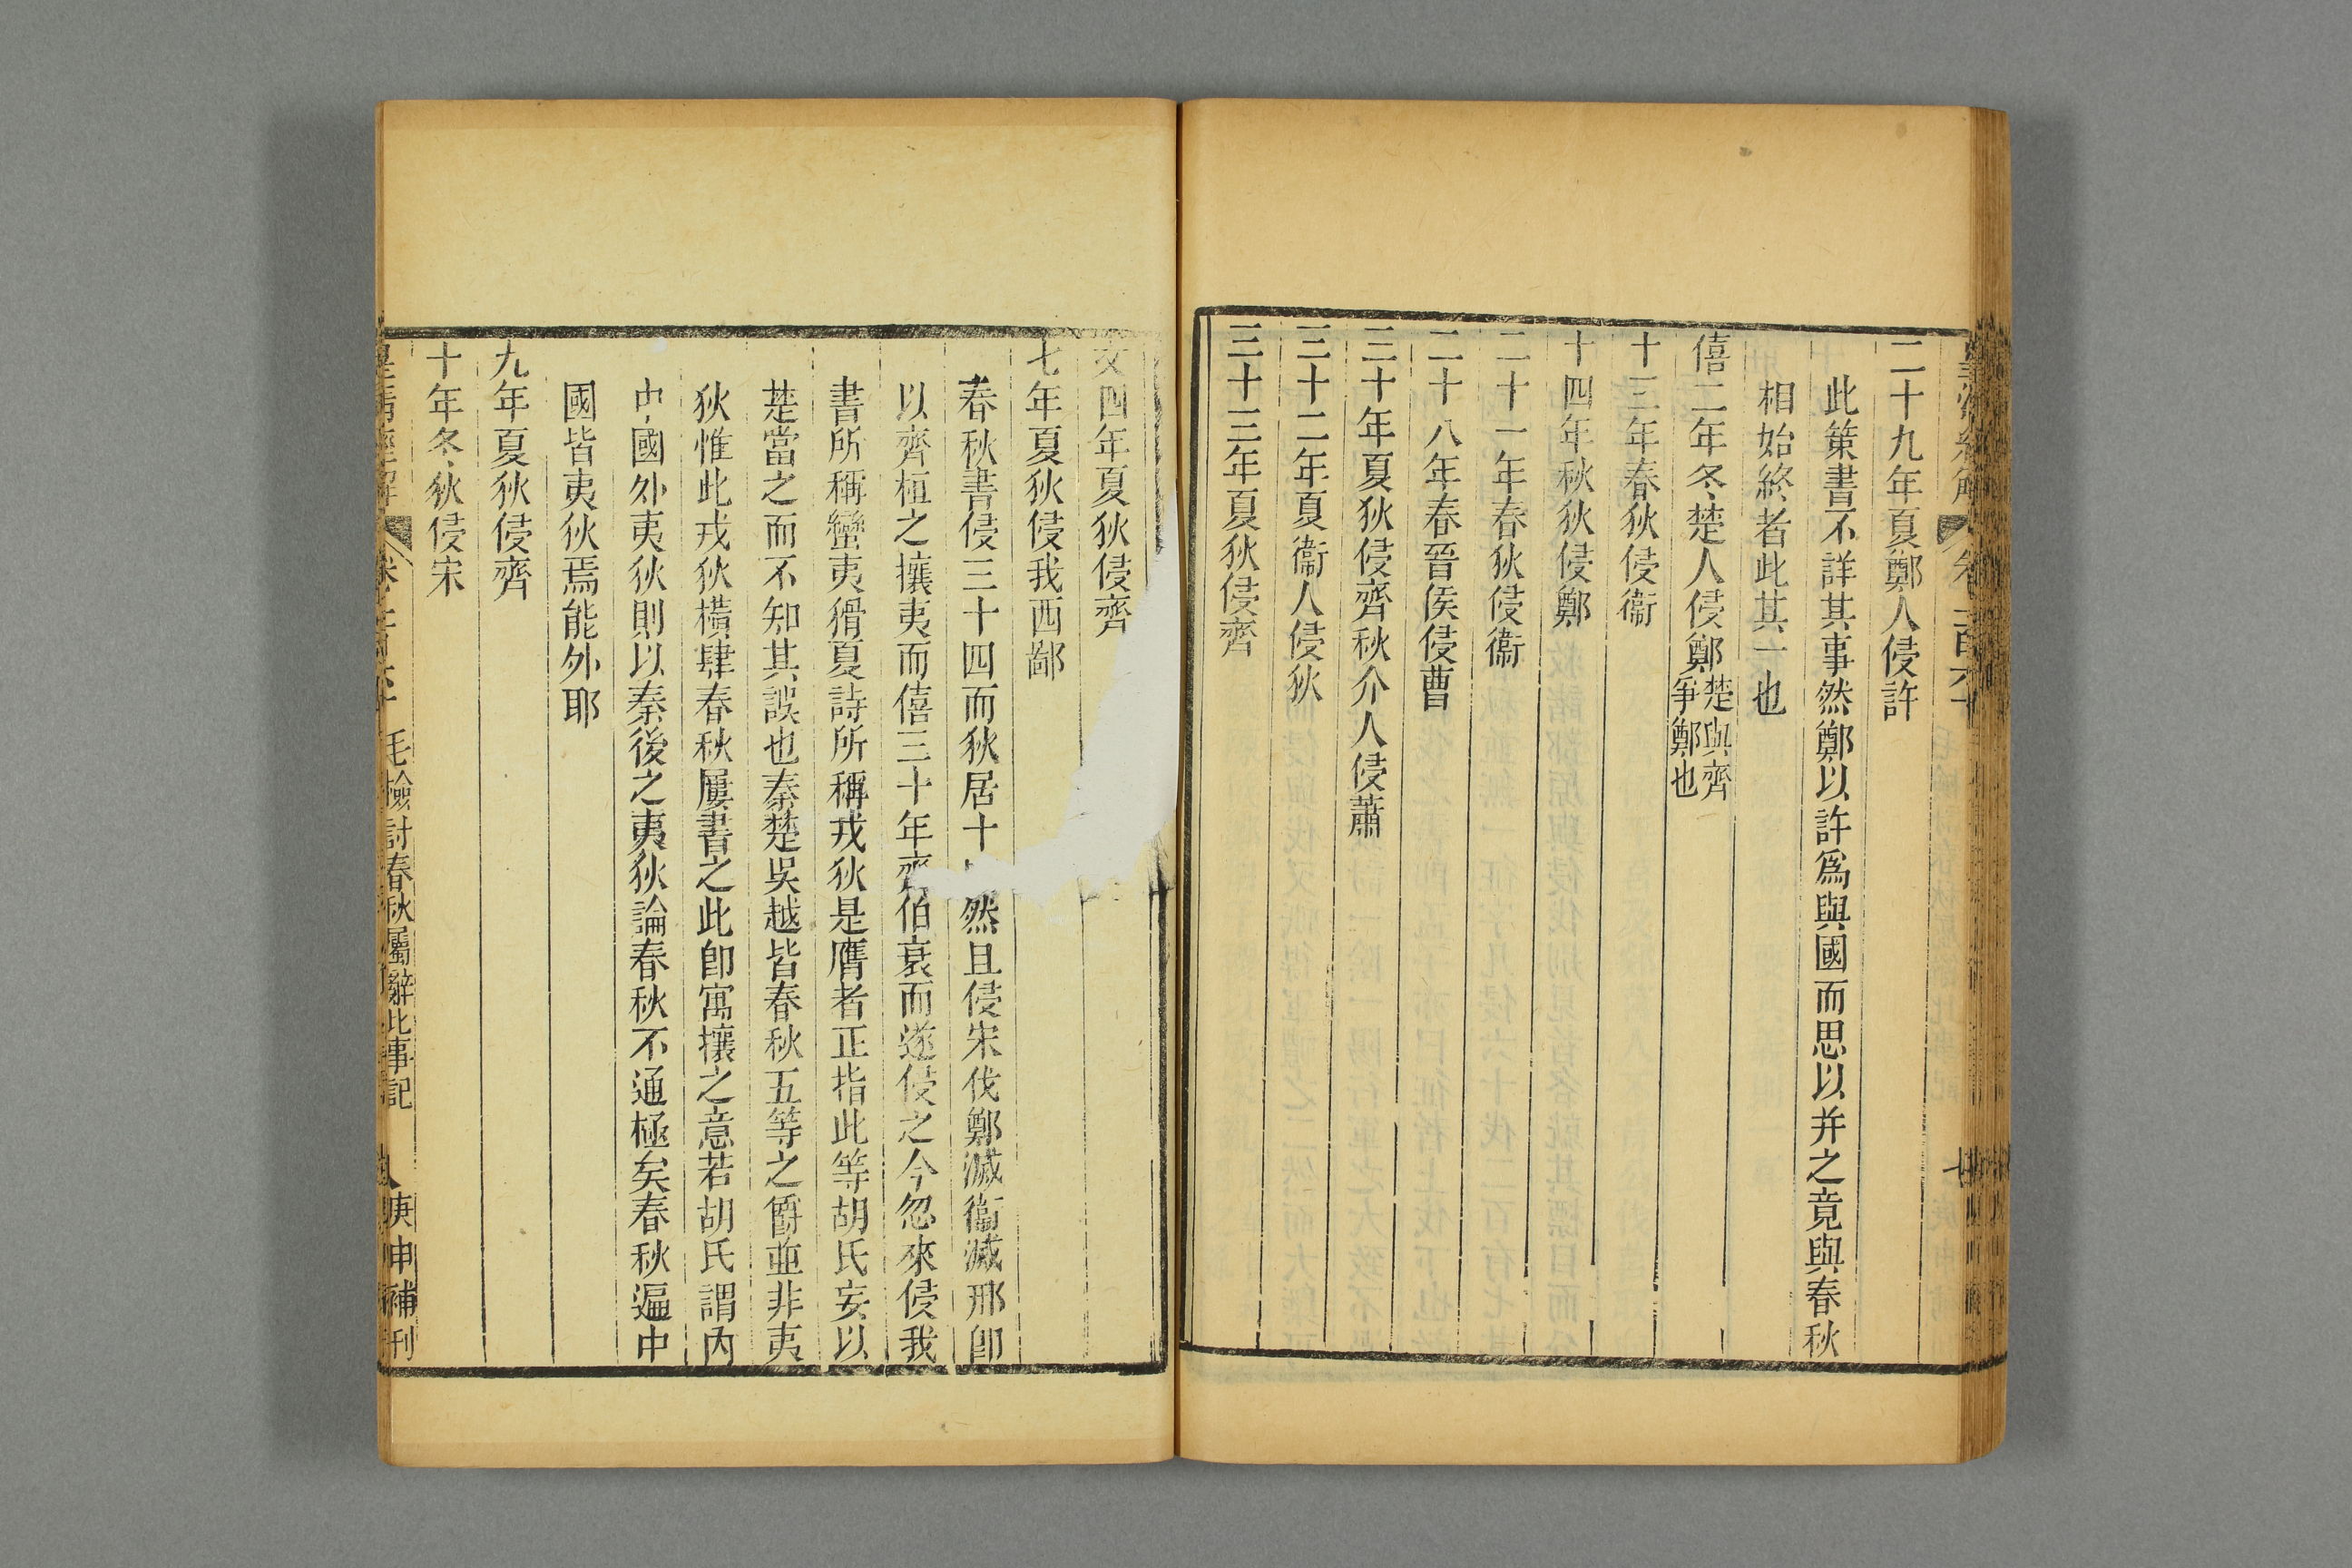 二十九年夏鄭人侵許
此策書不詳其事然鄭以許爲與國而思以并之竟與春秋
相始終者此其一也
僖二年冬楚人侵鄭楚與齊爭鄭也
十三年春狄侵衞
十四年秋狄侵鄭
二十一年春狄侵衞
二十八年春晉侯侵曹
三十年夏狄侵齊秋介人侵蕭
三十二年夏衞人侵狄
三十三年夏狄侵齊
文四年夏狄侵齊
七年夏狄侵我西鄙
春秋書侵三十四而狄居十然且侵宋伐鄭滅衞滅邢卽
以齊桓之攘夷而僖三十年齊伯衰而遂侵之今忽來侵我
書所稱蠻夷猾夏詩所稱戎狄是膺者正指此等胡氏妄以
楚當之而不知其誤也秦楚吳越皆春秋五等之爵並非夷
狄惟此戎狄橫肆春秋屢書之此卽寓攘之意若胡氏謂內
中國外夷狄則以秦後之夷狄論春秋不通極矣春秋遍中
國皆夷狄焉能外耶
九年夏狄侵齊
十年冬狄侵宋
皇清經解 毛檢討春秋屬辭比事記 庚申補刊